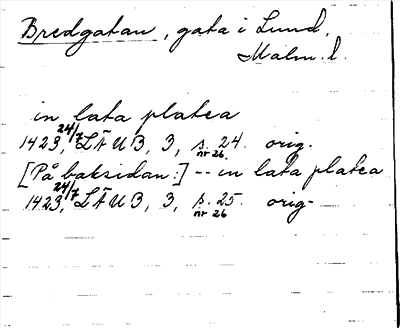 Bredgatan, gata i Lund,
Malm. l.
in lata platea
1423, 24/7 LÄUB, 3, s. 24. orig.
nr 26
[På baksidan:] -- in lata platea
1423, 24/7 LÄUB, 3, s. 25. orig-
nr 26